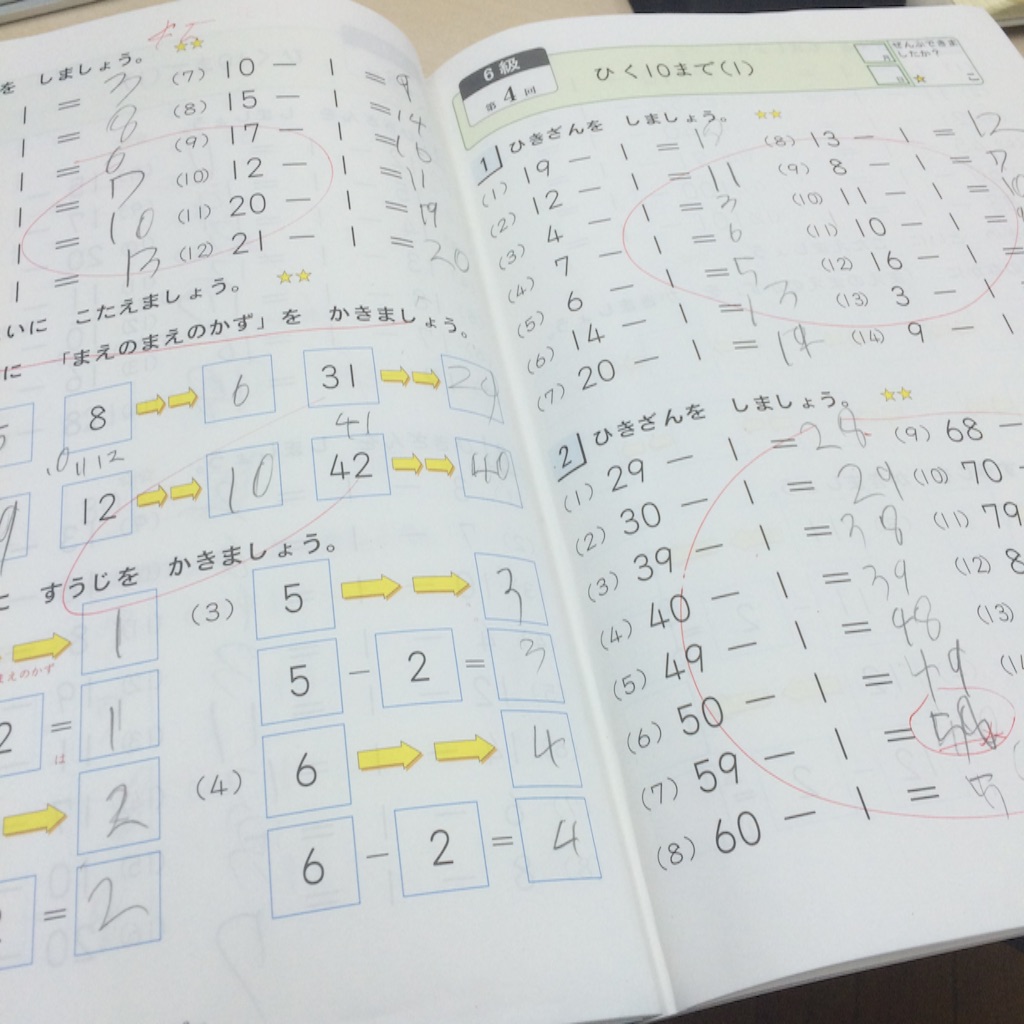 を しましょう。
1 = 3
1 = 8
1 = 6
1 = 7
1 = 10
1 = 13
(7) 10 − 1 = 9
(8) 15 − 1 = 14
(9) 17 − 1 = 16
(10) 12 − 1 = 11
(11) 20 − 1 = 19
(12) 21 − 1 = 20
いに こたえましょう。
に 「まえのまえのかず」を かきましょう。
8 6
31 29
41
9
10 11 12
12 10
42 40
に すうじを かきましょう。
1
まえのかず
2 = 1
は
2
= 2
(3) 5 3
5 − 2 = 3
(4) 6 4
6 − 2 = 4
6級
第4回
ひく10まで(1)
ぜんぶできま
したか?
こ
1 ひきざんを しましょう。
(1) 19 − 1 =
(2) 12 − 1 = 11
(3) 4 − 1 = 3
(4) 7 − 1 = 6
(5) 6 − 1 = 5
(6) 14 − 1 = 13
(7) 20 − 1 = 19
(8) 13 − 1 = 12
(9) 8 − 1 = 7
(10) 11 − 1 = 10
(11) 10 − 1 =
(12) 16 − 1 =
(13) 3 − 1
(14) 9 − 1
2 ひきざんを しましょう。
(1) 29 − 1 = 28
(2) 30 − 1 = 29
(3) 39 − 1 = 38
(4) 40 − 1 = 39
(5) 49 − 1 = 48
(6) 50 − 1 = 49
(7) 59 − 1 =
(8) 60 − 1 = 5
(9) 68 −
(10) 70
(11) 79
(12) 8
(13)